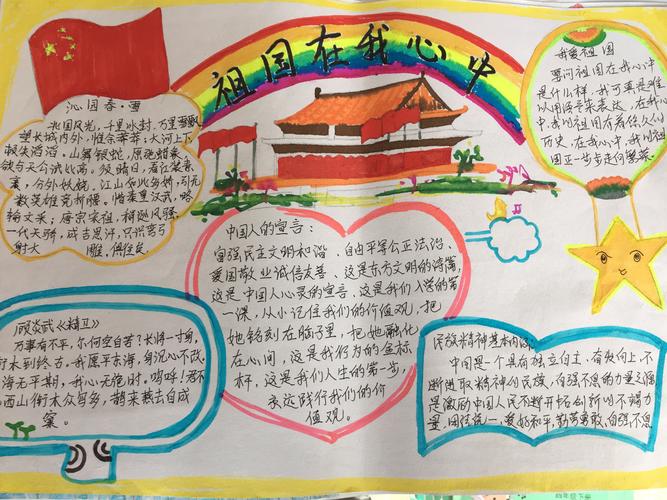 祖国在我心中
沁园春·雪
北国风光，千里冰封，万里雪飘
望长城内外，惟余莽莽；大河上下
顿失滔滔。山舞银蛇，原驰蜡象，
欲与天公试比高。须晴日，看红装素
裹，分外妖娆。江山如此多娇，引无
数英雄竞折腰。惜秦皇汉武，略
输文采；唐宗宋祖，稍逊风骚，
一代天骄，成吉思汗，只识弯弓
射大雕。俱往矣
我爱祖国
要问祖国在我心中
是什么样，我可真是难
以用语言来表达，在我心
中，我的祖国有着悠久的
历史，在我心中，我的祖
国正一步步走向繁荣。
中国人的宣言：
富强民主文明和谐、自由平等公正法治、
爱国敬业诚信友善、这是东方文明的诗篇，
这是中国人心灵的宣言，这是我们入学的第
一课，从小记住我们的价值观，把
她铭刻在脑子里，把她融化
在心间，这是我们行为的坐标
杆，这是我们人生的第一步，
永远践行我们的价
值观。
顾炎武《精卫》
万事有不平，尔何空自苦？长将一寸身，
衔木到终古。我愿平东海，身沉心不改，
海无平期，我心无绝时。呜呼！君不
西山衔木众鸟多，鹊来燕去自成
窠。
民族精神基本内涵
中国是一个具有独立自主、有奋向上、不
断进取精神的民族，自强不息的力量之源
是激励中国人民不断开拓创新的不竭力
量、团结统一、爱好和平、勤劳勇敢、自强不息
四年级下册